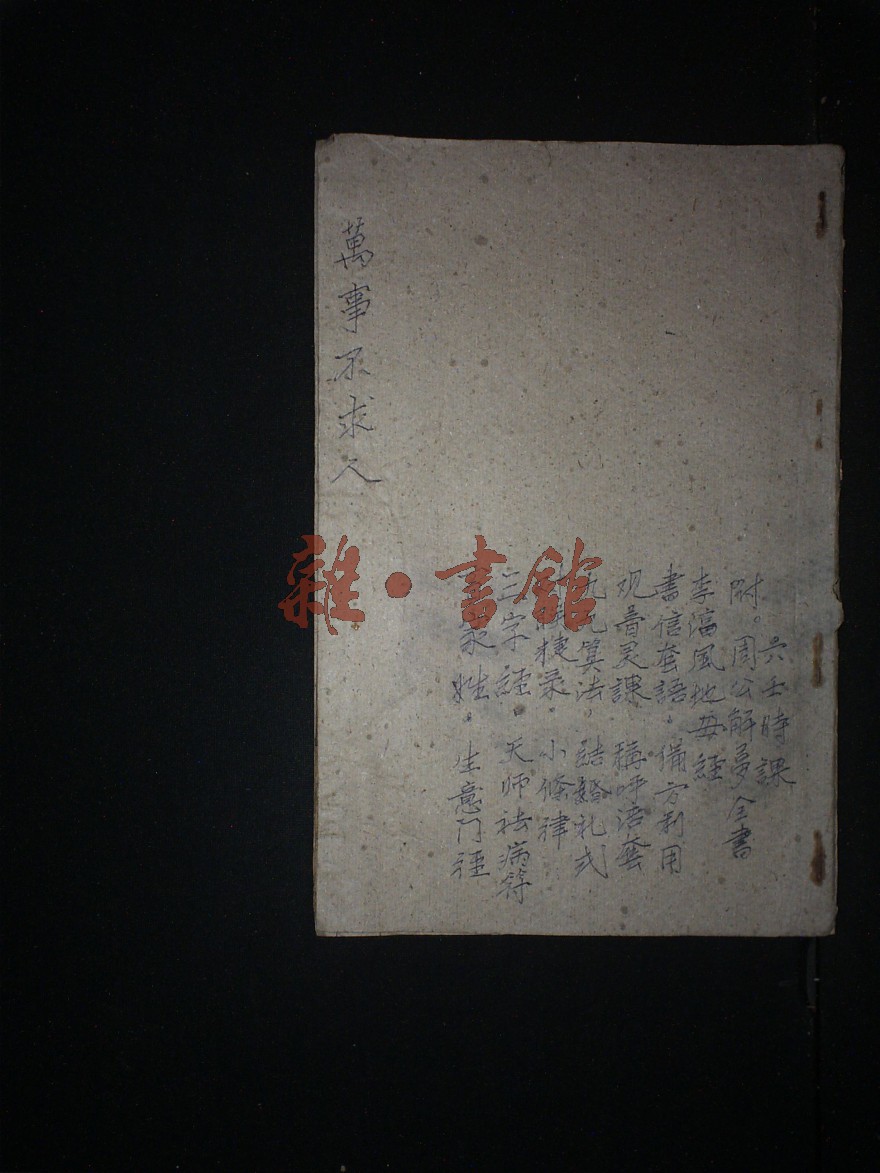 六壬時課
附。周公解夢全書
李淳風地母經
書信套語。備方利用
观音灵課 稱呼活套
九九算法。結婚礼式
捷录。小條律
三字經。天师祛病符
家姓。生意门徑
萬事不求人
雜·書館